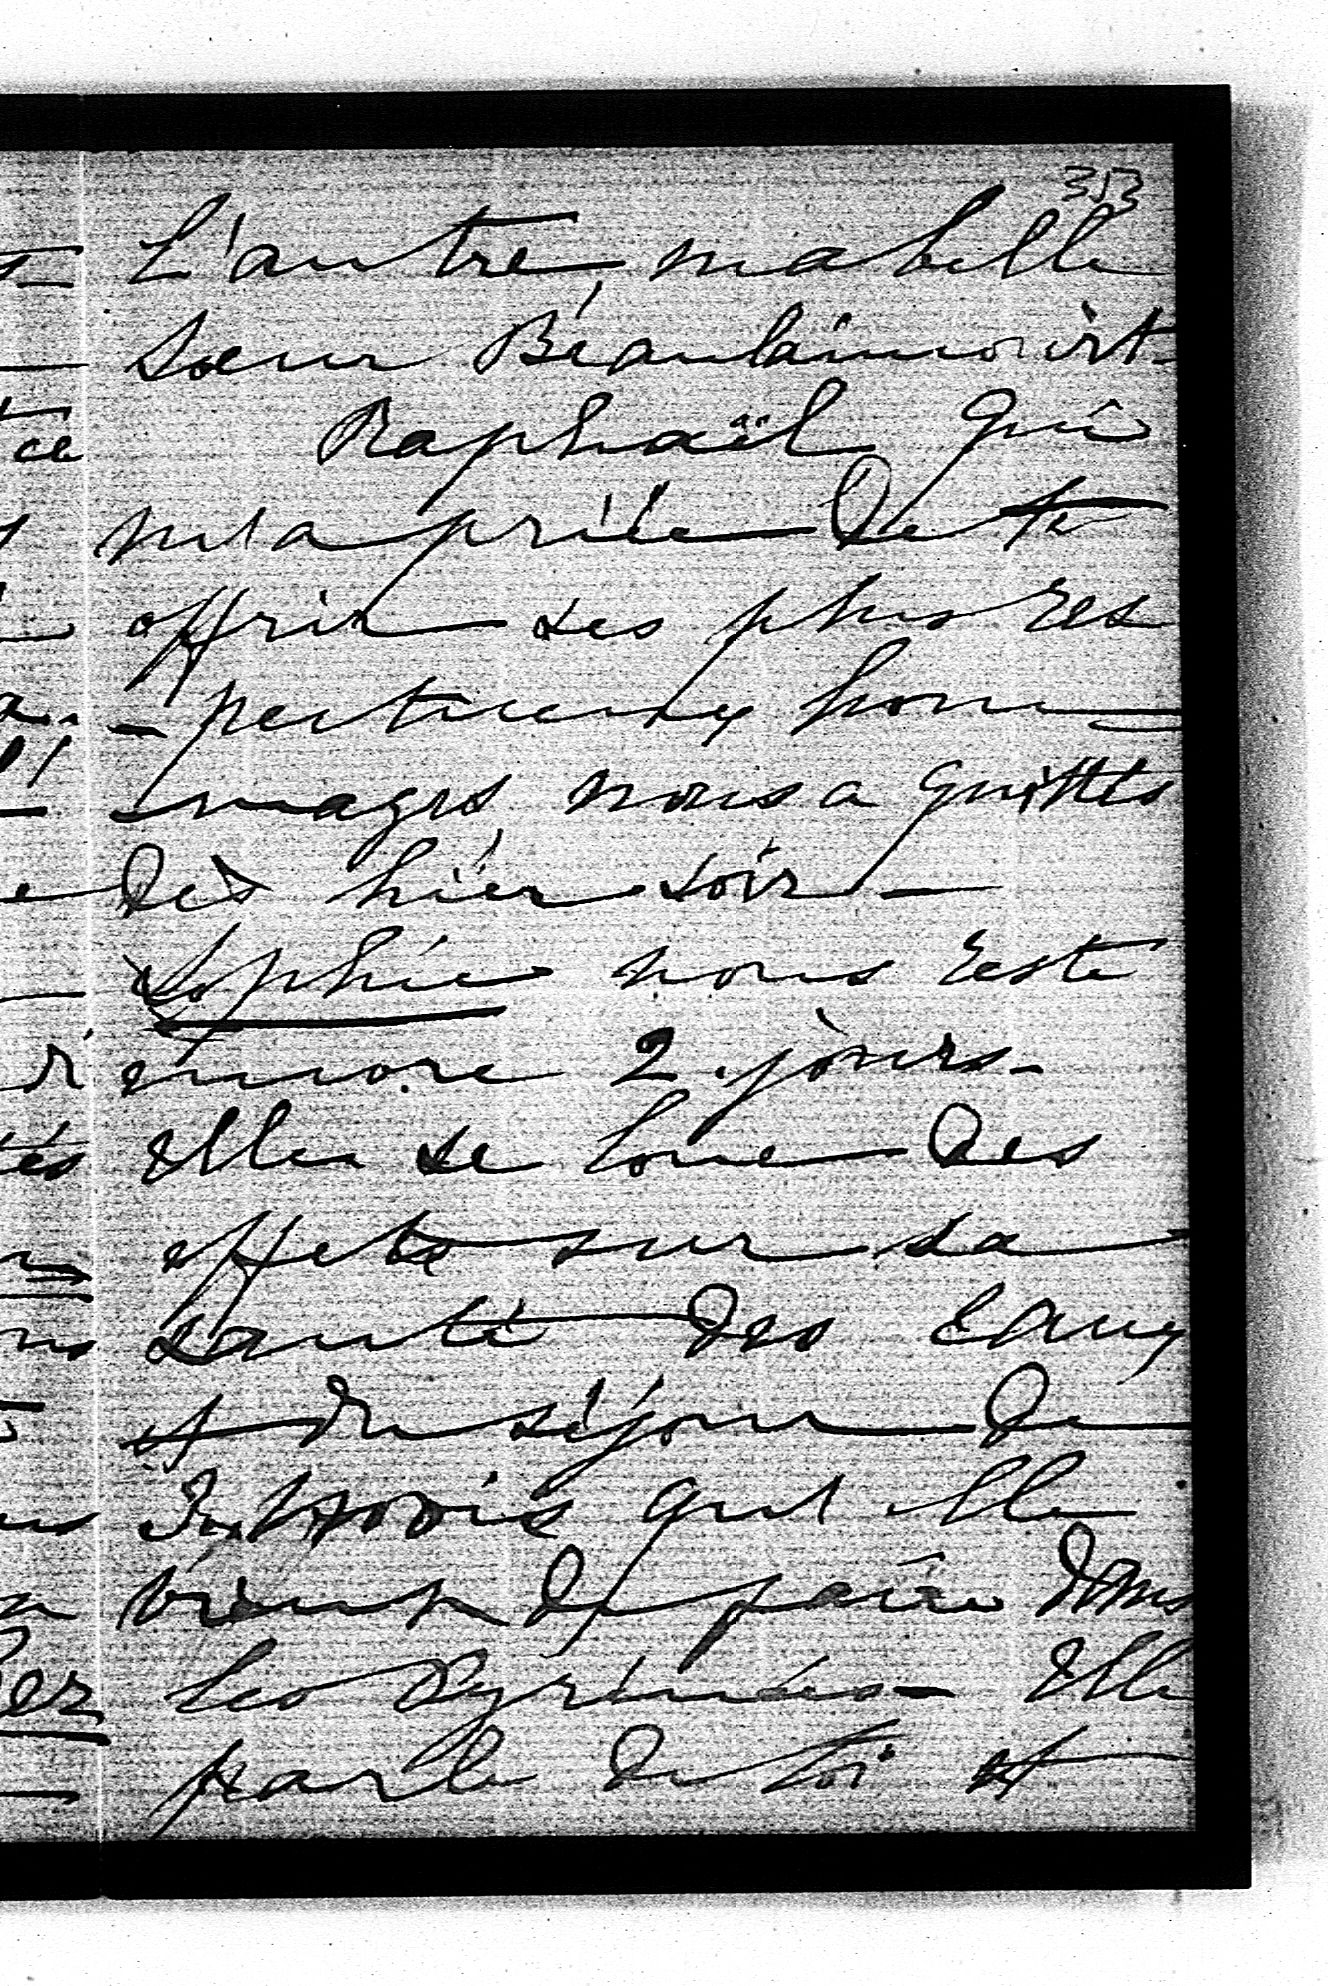 353
L'autre, ma belle
sœur Béaulaincourt.
Raphaël qui
m'a priée de te
offrir ses plus res
-pectueux hom-
-mages nous a quittés
dès hier soir -
Sophie nous reste
encore 2 jours -
elle se loue des
effets sur sa
santé des Eaux
et du séjour de
qu'elle
vient de faire dans
les Pyrénées - Elle
parle de toi et